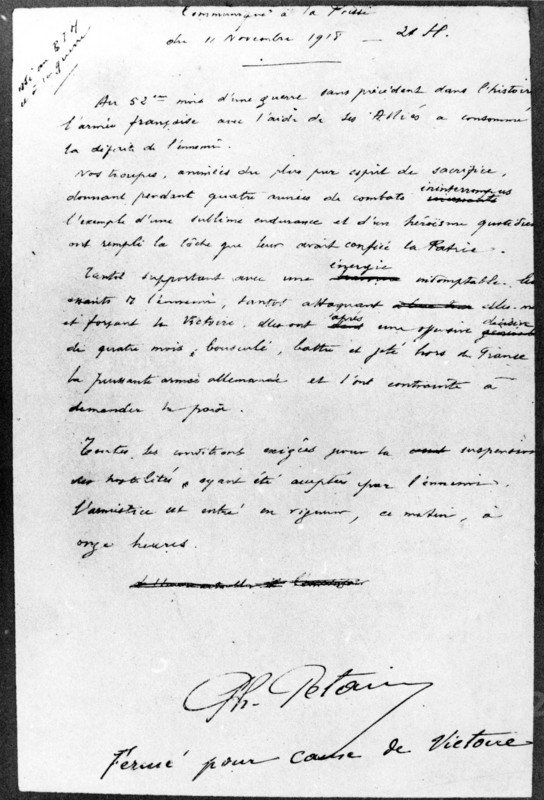 Communiqué à la Presse
du 11 Novembre 1918 — 21 H.
Au 52ème mois d'une guerre sans précédent dans l'histoire
l'armée française avec l'aide de ses Alliés a consommé
la défaite de l'ennemi.
Nos troupes, animées du plus pur esprit de sacrifice,
donnant pendant quatre années de combats ininterrompus
l'exemple d'une sublime endurance et d'un héroïsme quotidien
ont rempli la tâche que leur avait confiée la Patrie.
Tantôt supportant avec une énergie indomptable les
assauts de l'ennemi, tantôt attaquant elles-m
et forçant la Victoire, elles ont après une offensive décisive
de quatre mois, bousculé, battu et jeté hors de France
la puissante armée allemande et l'ont contrainte à
demander la paix.
Toutes les conditions exigées pour la suspension
des hostilités, ayant été acceptées par l'ennemi,
l'armistice est entré en vigueur, ce matin, à
onze heures.
Ph. Pétain
Fermé pour cause de Victoire